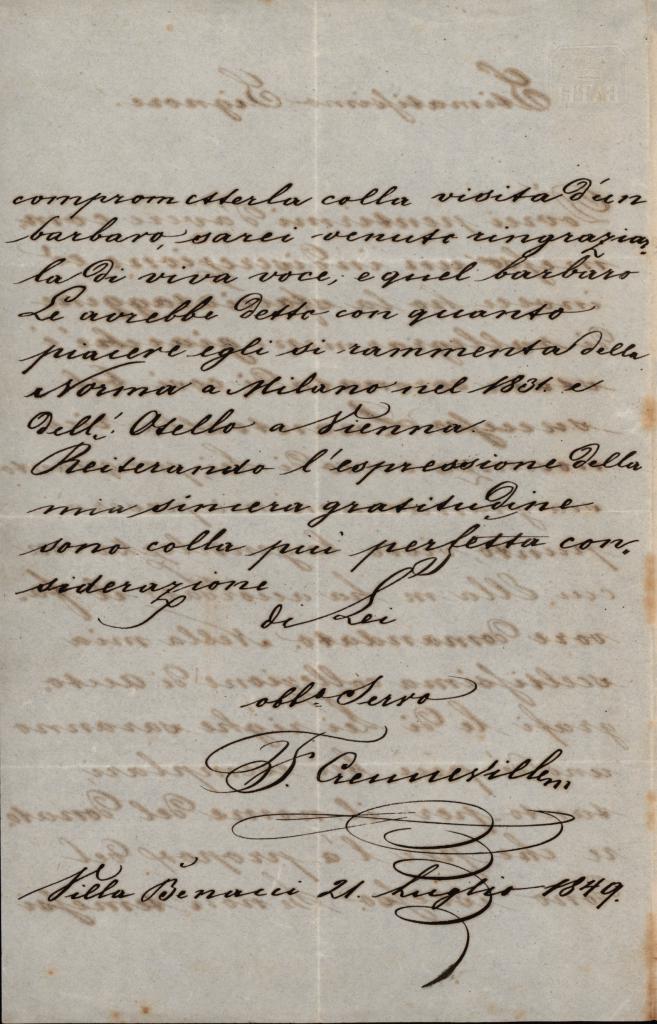 comprometterla colla visita d'un
barbaro, sarei venuto ringrazia-
la di viva voce, e quel barbaro
Le avrebbe detto con quanto
piacere egli si rammenta della
Norma a Milano nel 1831. e
dell': Otello a Vienna.
Reiterando l'espressione della
mia sincera gratitudine
sono colla più perfetta con-
siderazione
di Lei
obbl.o Servo
F. Crenneville
Villa Benacci 21. Luglio 1849.